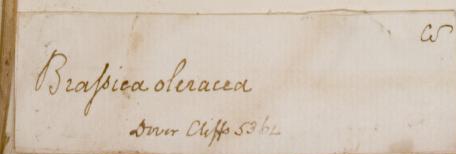 Braſsica oleracea
Dover Cliffs